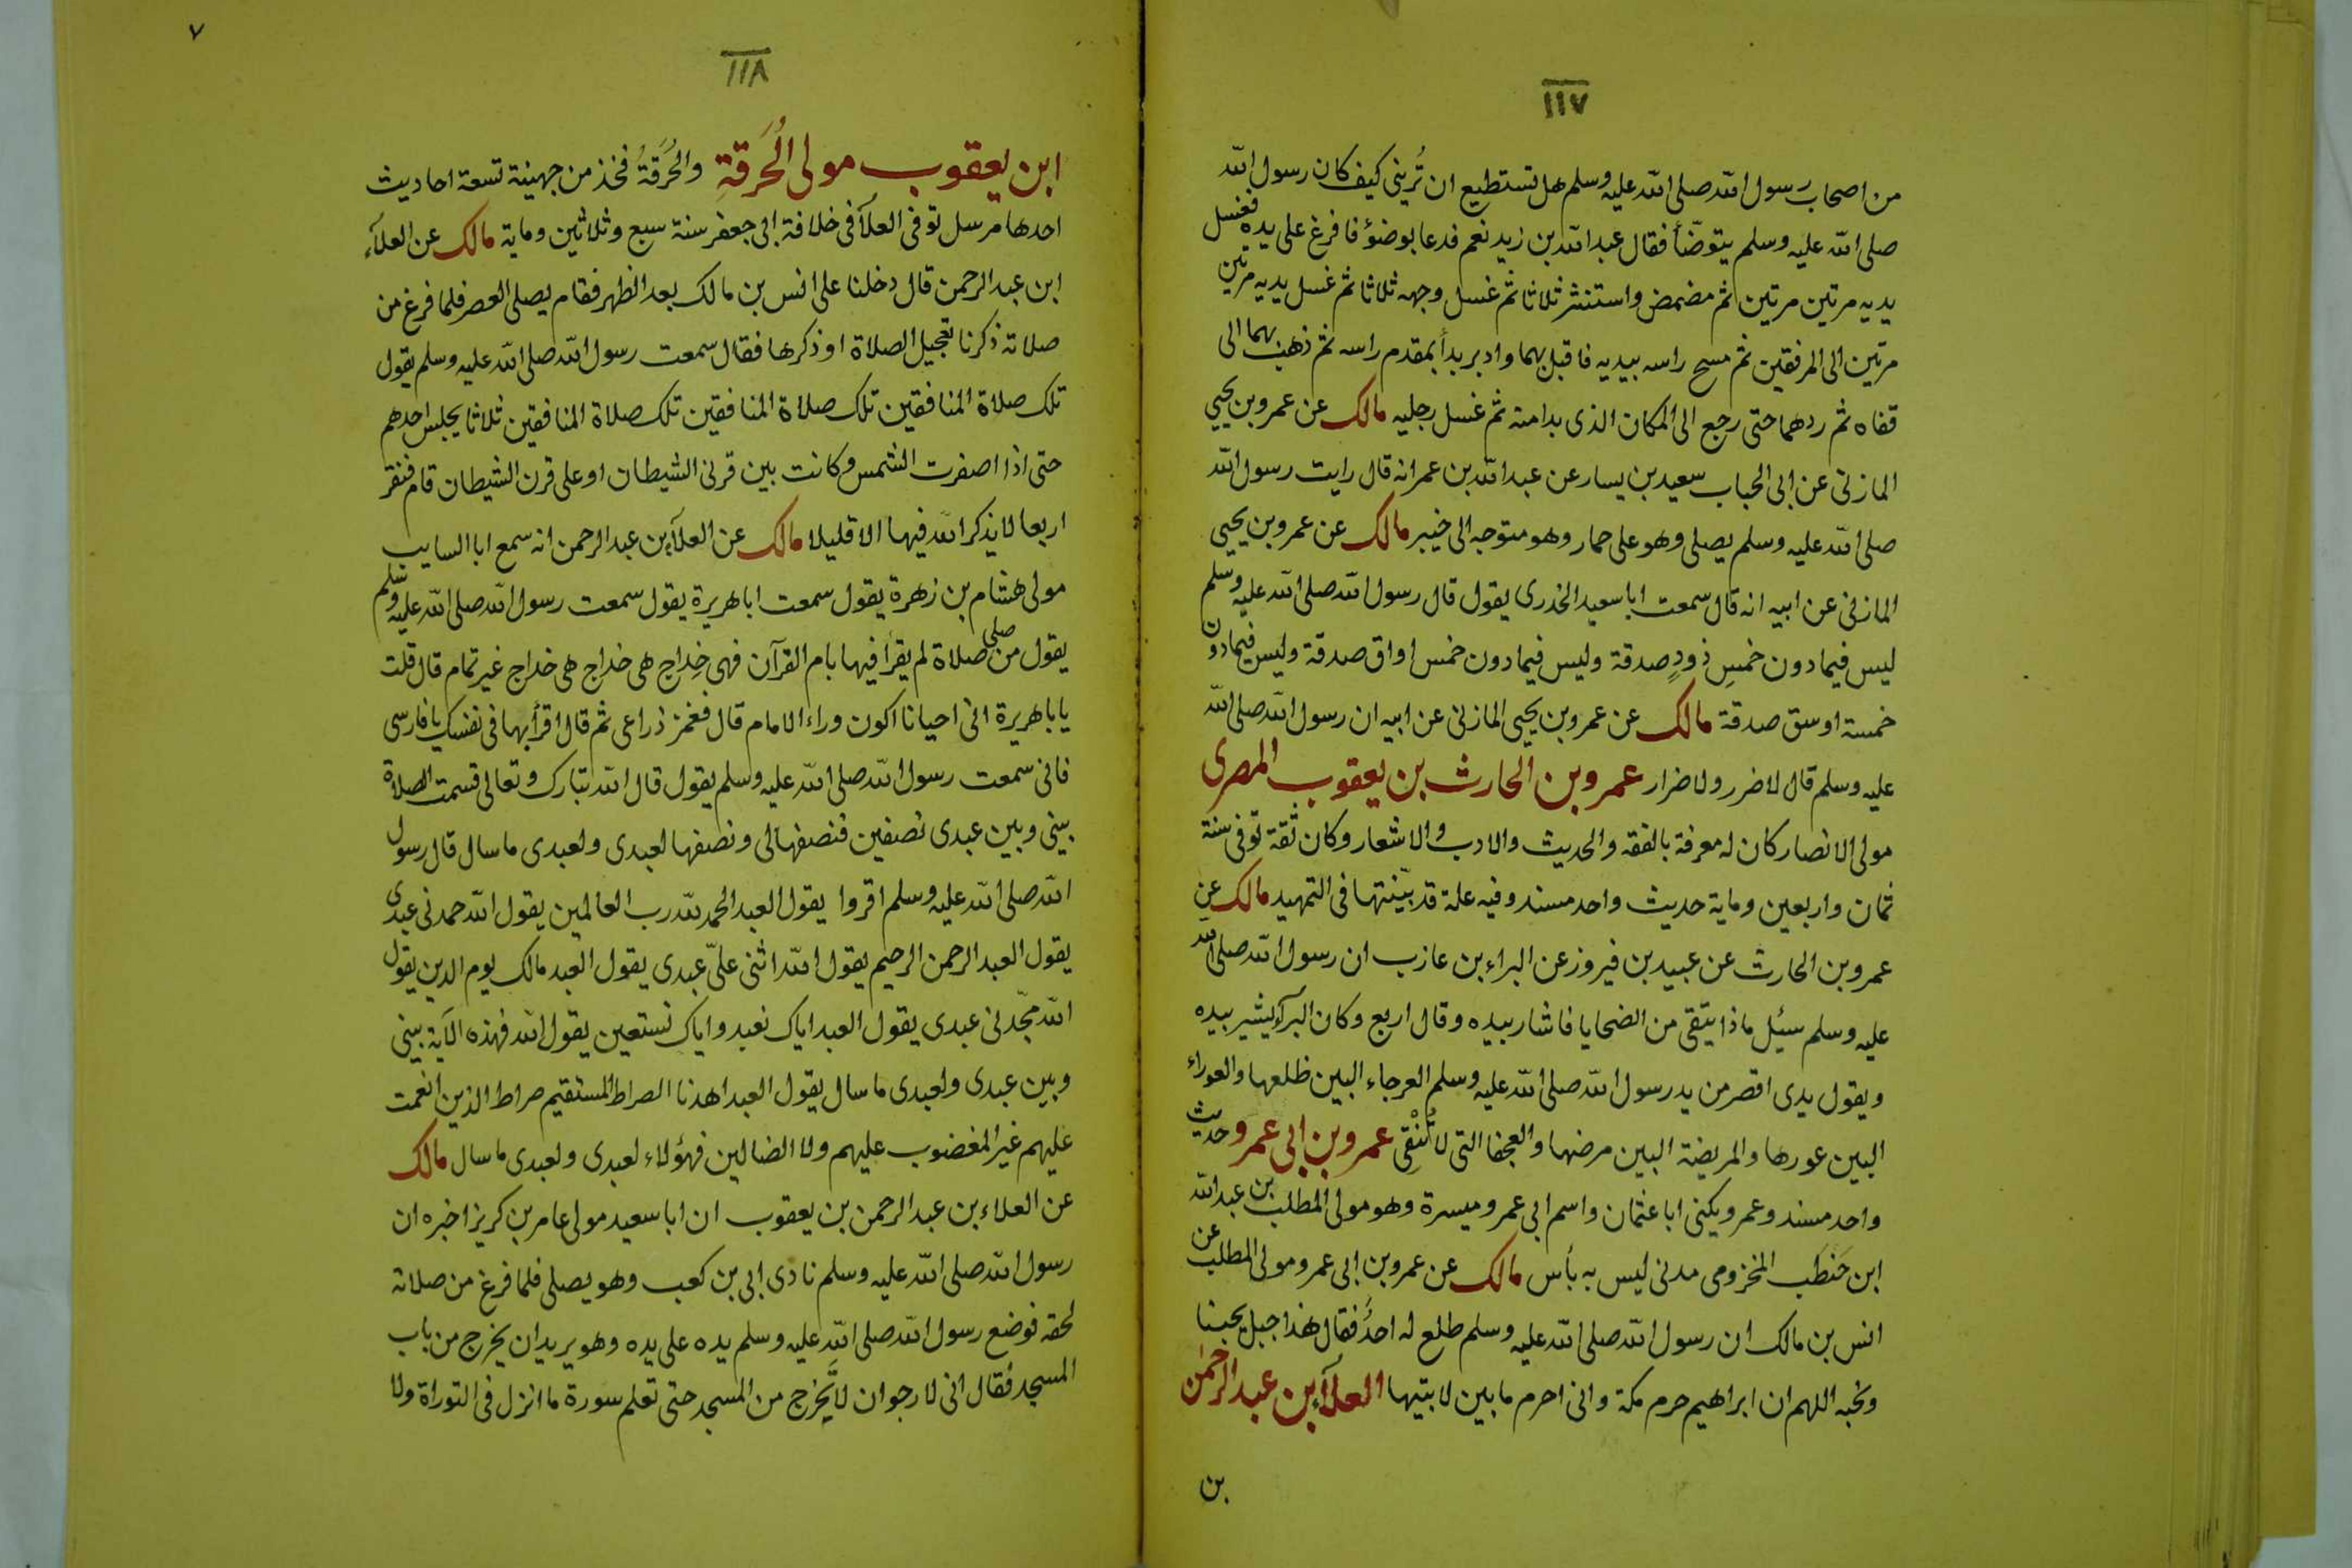 ١١٧
من اصحاب رسول الله صلى الله عليه وسلم هل تستطيع ان تُريني كيف كان رسول الله
صلى الله عليه وسلم يتوضّأ فقال عبد الله بن زيد نعم فدعا بوضوٴ فافرغ على يده فغسل
يديه مرتين مرتين ثم مضمض واستنثر ثلاثا ثم غسل وجهه ثلاثا ثم غسل يديه مرتين
مرتين الى المرفقين ثم مسح راسه بيديه فاقبل بهما وادبر بدأ بمقدم راسه ثم ذهب بهما الى
قفاه ثم ردهما حتى رجع الى المكان الذى بدا منه ثم غسل رجليه مالك عن عمرو بن يحيى
المازنى عن ابى الحباب سعيد بن يسار عن عبد الله بن عمر انه قال رايت رسول الله
صلى الله عليه وسلم يصلى وهو على حمار وهو متوجه الى خيبر مالك عن عمرو بن يحيى
المازنى عن ابيه انه قال سمعت ابا سعيد الخدرى يقول قال رسول الله صلى الله عليه وسلم
ليس فيما دون خمسِ ذودٍ صدقة وليس فيما دون خمس اواق صدقة وليس فيما دون
خمسة اوسق صدقة مالك عن عمرو بن يحيى المازنى عن ابيه ان رسول الله صلى الله
عليه وسلم قال لا ضرر ولا ضرار عمرو بن الحارث بن يعقوب المصرى
مولى الانصار كان له معرفة بالفقه والحديث والادب والاشعار وكان ثقة توفى سنة
ثمان واربعين وماية حديث واحد مسند وفيه علة قد بيّنتها فى التمهيد مالك عن
عمرو بن الحارث عن عبيد بن فيروز عن البراء بن عازب ان رسول الله صلى الله
عليه وسلم سئيل ماذا يتقى من الضحايا فاشار بيده وقال اربع وكان البرآء يشير بيده
ويقول يدى اقصر من يد رسول الله صلى الله عليه وسلم العرجاء البين ظلعها والعوراء
البين عورها والمريضة البين مرضها والعجفا التى لا تُنْقِى عمرو بن ابى عمرو حديث
واحد مسند وعمرو يكنى ابا عثمان واسم ابى عمرو ميسرة وهو مولى المطلب بن عبد الله
ابن حَنطَب المخزومى مدنى ليس به بأس مالك عن عمرو بن ابى عمرو مولى المطلب عن
انس بن مالك ان رسول الله صلى الله عليه وسلم طلع له احدٌ فقال هذا جبل يحبنا
ونحبه اللهم ان ابراهيم حرم مكة وانى احرم ما بين لابتيها العلآء بن عبد الرحمن
بن
٧
١١٨
ابن يعقوب مولى الُحَرقةِ والحُرَقةُ فخذ من جهينة تسعة احاديث
احدها مرسل توفى العلآ فى خلافة ابى جعفر سنة سبع وثلاثين وماية مالك عن العلآء
ابن عبد الرحمن قال دخلنا على انس بن مالك بعد الظهر فقام يصلى العصر فلما فرغ من
صلاته ذكرنا تعجيل الصلاة او ذكرها فقال سمعت رسول الله صلى الله عليه وسلم يقول
تلك صلاة المنافقين تلك صلاة المنافقين تلك صلاة المنافقين ثلاثا يجلس احدهم
حتى اذا اصفرت الشمس وكانت بين قرنى الشيطان او على قرن الشيطان قام فنقر
اربعا لا يذكر الله فيها الا قليلا مالك عن العلآء بن عبد الرحمن انه سمع ابا السايب
مولى هشام بن زهرة يقول سمعت ابا هريرة يقول سمعت رسول الله صلى الله عليه وسلم
يقول من صلى صلاة لم يقرأ فيها بام القرآن فهى خِداج هى خداج هى خداج غير تمام قال قلت
يابا هريرة انى احيانا اكون وراء الامام قال فغمز ذراعى ثم قال اقرأ بها فى نفسك يا فارسى
فانى سمعت رسول الله صلى الله عليه وسلم يقول قال الله تبارك وتعالى قسمت الصلاة
بينى وبين عبدى نصفين فنصفها لى ونصفها لعبدى ولعبدى ما سال قال رسول
الله صلى الله عليه وسلم اقروا يقول العبد الحمد لله رب العالمين يقول الله حمدنى عبدى
يقول العبد الرحمن الرحيم يقول الله اثنى علىّ عبدى يقول العبد مالك يوم الدين يقول
الله مجّدنى عبدى يقول العبد اياك نعبد واياك نستعين يقول الله فهذه الآية بينى
وبين عبدى ولعبدى ما سال يقول العبد اهدنا الصراط المستقيم صراط الذين انعمت
عليهم غير المغضوب عليهم ولا الضالين فهؤلاء لعبدى ولعبدى ما سال مالك
عن العلاء بن عبد الرحمن بن يعقوب ان ابا سعيد مولى عامر بن كريز اخبره ان
رسول الله صلى الله عليه وسلم نادى ابى بن كعب وهو يصلى فلما فرغ من صلاته
لحقه فوضع رسول الله صلى الله عليه وسلم يده على يده وهو يريد ان يخرج من باب
المسجد فقال انى لارجو ان لا تخرج من المسجد حتى تعلم سورة ما انزل فى التوراة ولا